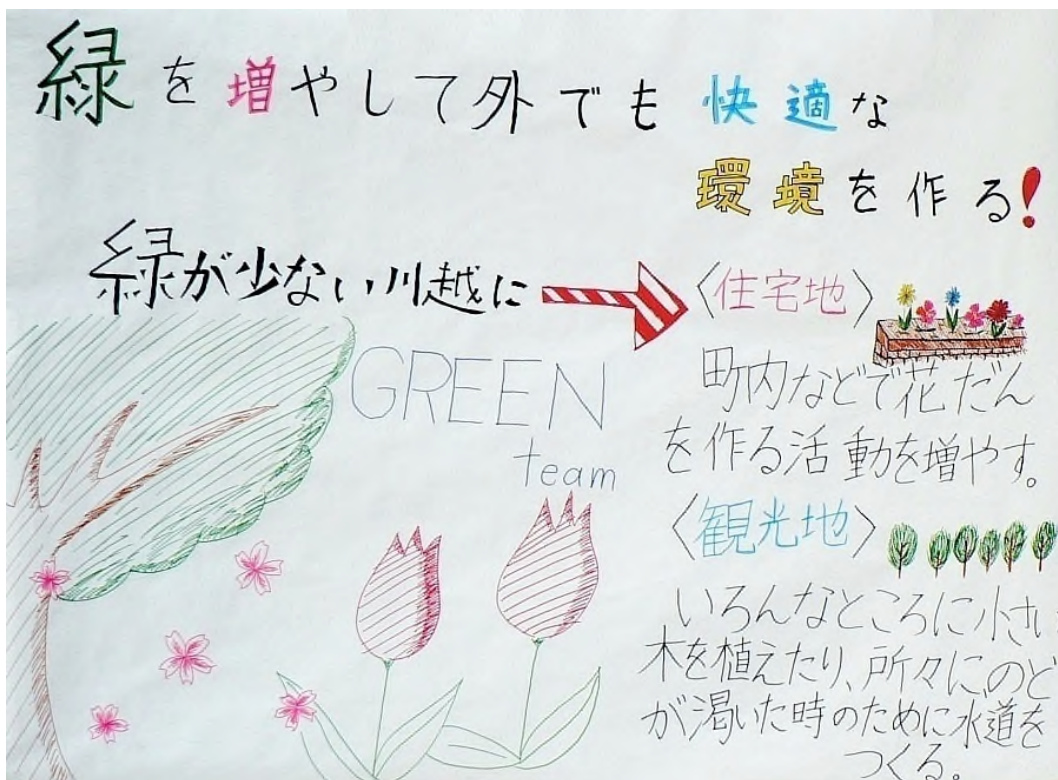 緑を増やして外でも快適な
環境を作る!
緑が少ない川越に
〈住宅地〉
GREEN
team
町内などで花だん
を作る活動を増やす。
〈観光地〉
いろんなところに小さい
木を植えたり、所々に、のど
が渇いた時のために水道を
つくる。